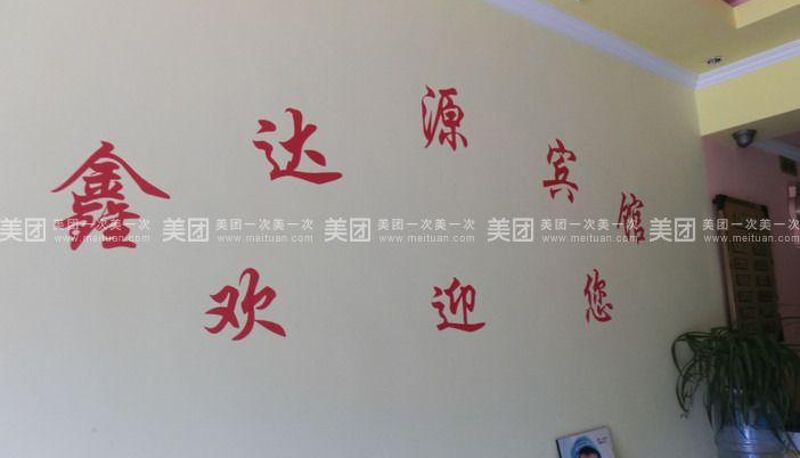 鑫达源宾馆
欢迎您
美团 美团一次美一次 www.meituan.com 美团 美团一次美一次 www.meituan.com 美团 美团一次美一次 www.meituan.com 美团 美团一次美一次 www.meituan.com 美团 美团一次美一次 www.meituan.com